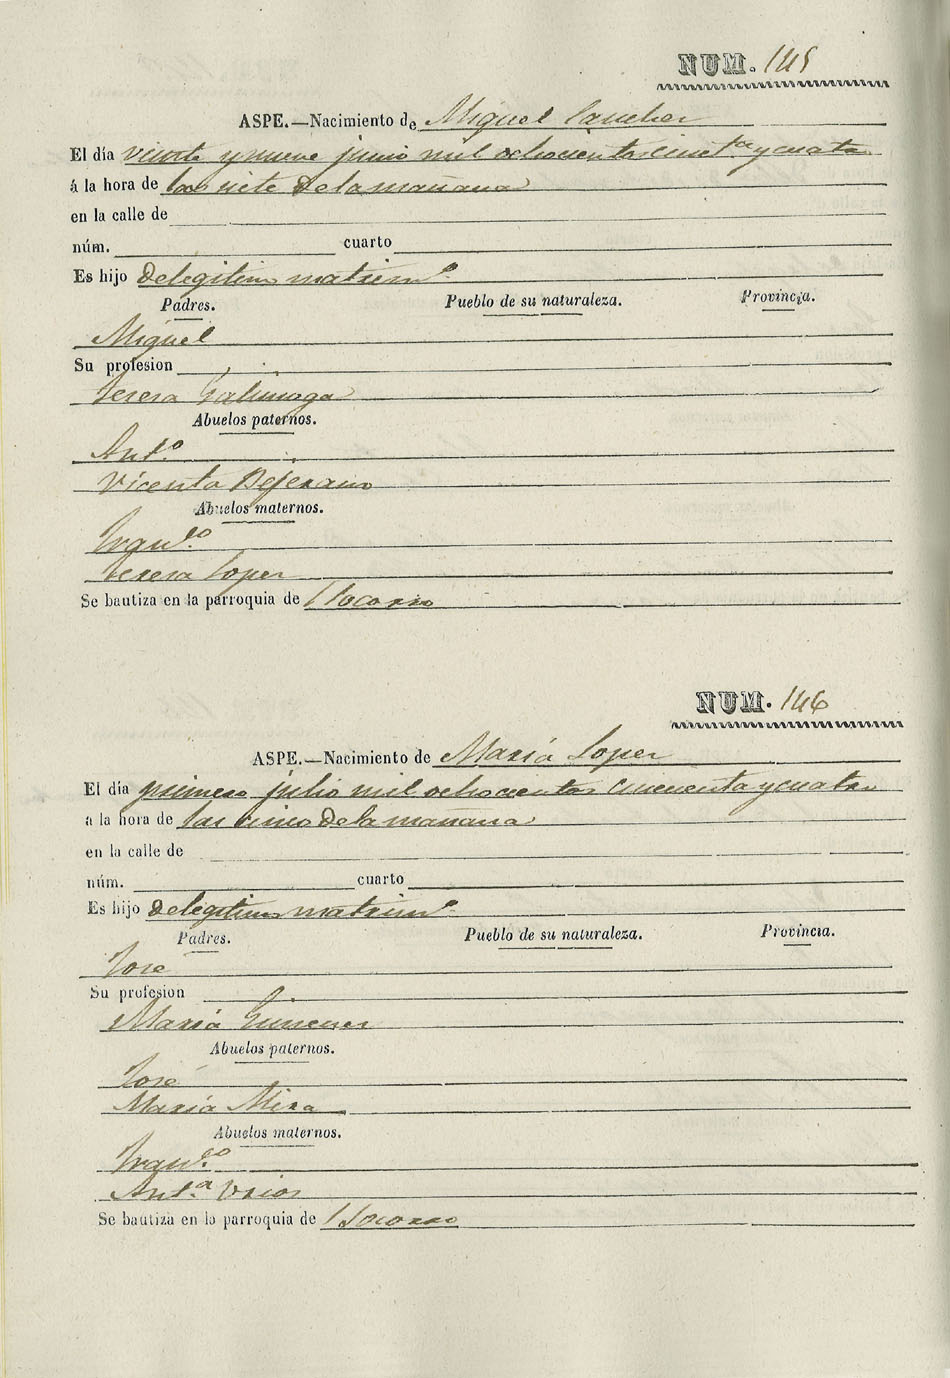 NUM. 145
ASPE.—Nacimiento de Miguel Sanchez
El día veinte y nueve junio mil ochocientos cincta y cuatro
á la hora de las siete de la mañana
en la calle de
núm. cuarto
Es hijo de legitimo matrimo
Padres. Pueblo de su naturaleza. Provincia.
Miguel
Su profesion
Teresa Galinaga
Abuelos paternos.
Anto
Vicenta Bejerano
Abuelos maternos.
Franco
Teresa Lopez
Se bautiza en la parroquia de Socorro
NUM. 146
ASPE.—Nacimiento de Maria Lopez
El día primero julio mil ochocientos cincuenta y cuatro
á la hora de las cinco de la mañana
en la calle de
núm. cuarto
Es hijo de legitimo matrimo
Padres. Pueblo de su naturaleza. Provincia.
José
Su profesion
Maria Gimenez
Abuelos paternos.
José
Maria Mira
Abuelos maternos.
Franco
Anta Urios
Se bautiza en la parroquia de Socorro